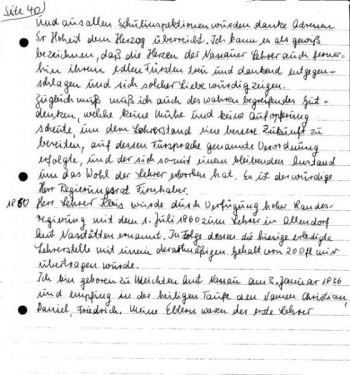 Seite 40)
Und aus allen Schulinspektionen wurden danke Adressen
Sr Hoheit dem Herzog überreicht. Ich kann es als gewiß
bezeichnen, daß die Herzen der Nassauer Lehrer auch ferner-
hin ihrem edlen Fürsten treu und dankend entgegen-
schlagen und sich solcher Liebe würdig zeigen.
Zugleich muß ich auch des wahren begreifender
denken, welche keine Mühe und keine Aufopferung
scheute, um dem Lehrerstand eine bessere Zukunft zu
bereiten, auf dessen Fürsprache genannte Verordnung
erfolgte, und der sich somit einen bleibenden
um das Wohl der Lehrer erworben hat. Es ist der würdige
Herr Regierungsrat Firnhaber.
1860 Herr Lehrer wurde durch Verfügung hoher Landes-
regierung mit dem 1. Juli 1860 zum Lehrer in Allendorf
Amt Nastätten ernannt. In Folge dessen die hiesige erledigte
Lehrerstelle mit einem Gehalt von 200 fl mir
übertragen wurde.
Ich bin geboren zu Amt Nassau am 3. Januar 1836
und empfing in der heiligen Taufe den Namen Christian,
Daniel, Friedrich. Meine Eltern waren der erste Lehrer